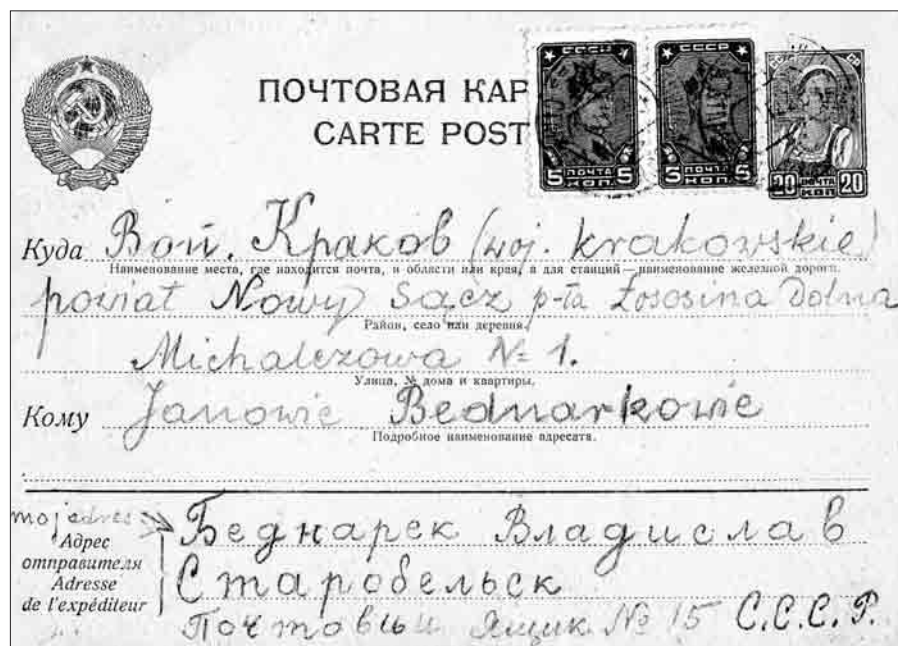 ПОЧТОВАЯ КАР
CARTE POST
СССР
5 ПОЧТА КОП.
СССР
5 ПОЧТА 5 КОП.
20 ПОЧТА 20 КОП.
Куда Вой. Краков (woj. krakowskie)
Наименование места, где находится почта, и области или края, а для станций — наименование железной дороги.
powiat Nowy Sącz p-ta Łososina Dolna
Район, село или деревня.
Michalczowa № 1.
Улица, № дома и квартиры.
Кому Janowie Bednarkowie
Подробное наименование адресата.
moj adres Беднарек Владислав
Адрес
отправителя
Adresse
de l'expéditeur
Старобельск
Почтовый Ящик № 15 С.С.С.Р.